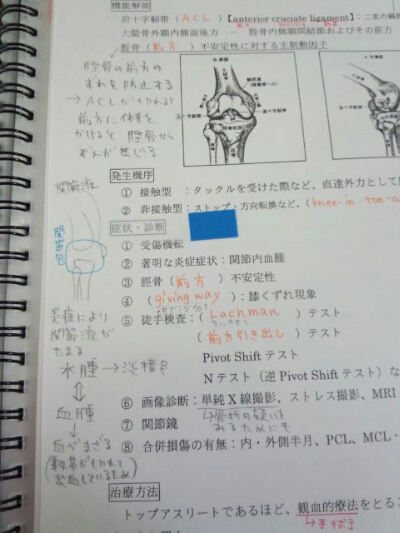 機能解剖
前十字靭帯（ACL）【anterior cruciate ligament】：二本の線
大腿骨外顆内側面後方 － 脛骨内側顆間結節およびその前方
脛骨（前方）不安定性に対する主制動因子
脛骨の前方の
ずれを防止する
→ACLが切れると
前方に体重を
かけると脛骨から
ずれが生じる
発生機序
① 接触型 ：タックルを受けた際など、直達外力として
② 非接触型：ストップ・方向転換など、（knee-in toe-o
症状・診断
① 受傷機転
② 著明な炎症症状：関節内血腫
③ 脛骨（前方）不安定性
④（giving way）：膝くずれ現象
⑤ 徒手検査：（Lachman）テスト
（前方引き出し）テスト
Pivot Shift テスト
N テスト（逆 Pivot Shift テスト）な
⑥ 画像診断：単純 X 線撮影、ストレス撮影、MRI
↳骨折の疑いを
みるためにも
⑦ 関節鏡
⑧ 合併損傷の有無：内・外側半月、PCL、MCL・
関節液
関節包
炎症により
関節液が
たまる
水腫→淡黄色
血腫
血がまざる
治療方法
トップアスリートであるほど、観血的療法をとるこ